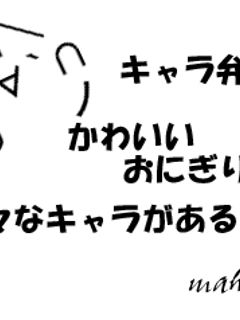 キャラ弁
かわいい
おにぎり
々なキャラがある
mah